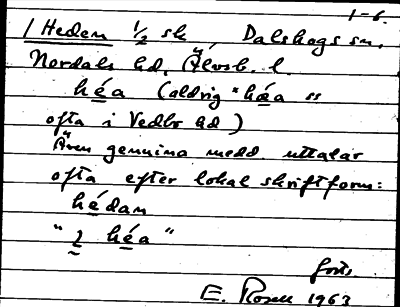 1-6.
/ Heden 1/2 sk Dalskogs sn,
Nordals hd, Älvsb. l.
héa (aldrig "hǽa"
ofta i Vedbo hd)
Även genuina medd. uttalar
ofta efter lokal skriftform:
hédan
"2 héa"
forts.
E. Rosell 1963